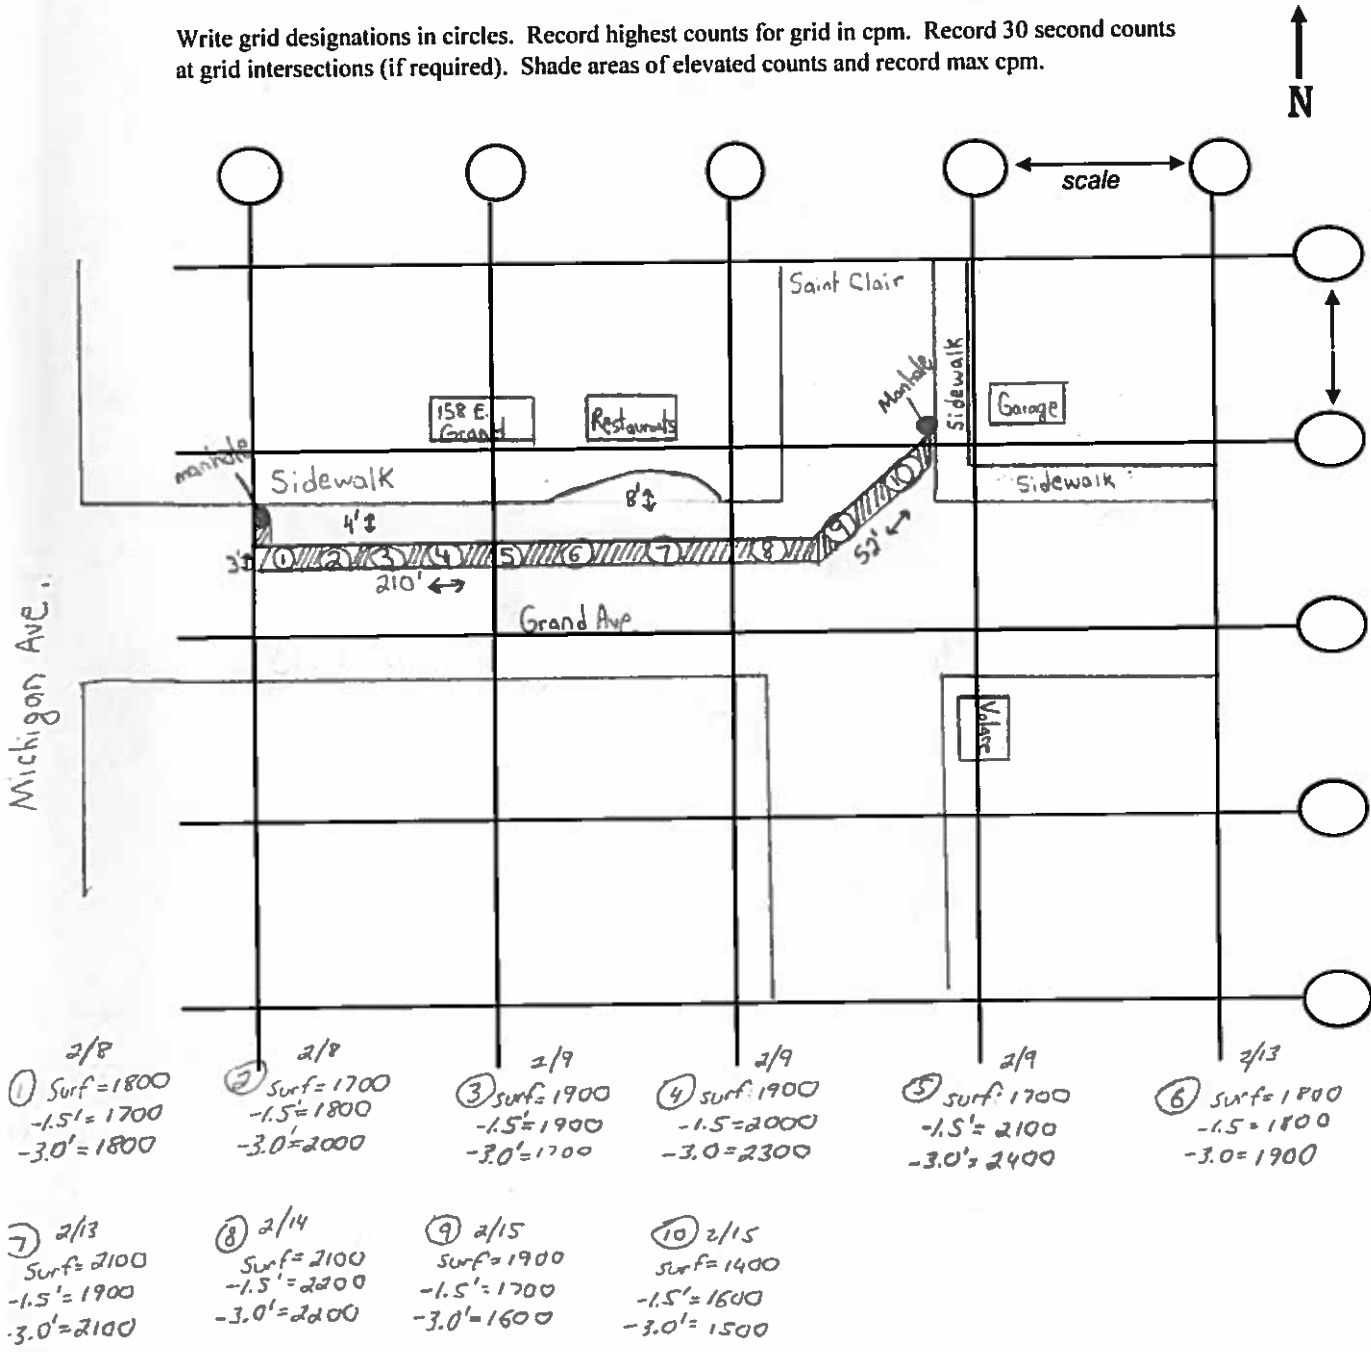 Write grid designations in circles. Record highest counts for grid in cpm. Record 30 second counts
at grid intersections (if required). Shade areas of elevated counts and record max cpm.
N
scale
Saint Clair
Sidewalk
Manhole
Garage
158 E.
Grand
Restaurants
manhole
Sidewalk
Sidewalk
8'
4'
3'
1 2 3 4 5 6 7 8 9 10
52'
210'
Grand Ave
Michigan Ave.
Volare
2/8
1 Surf=1800
-1.5'=1700
-3.0'=1800
2/8
2 Surf=1700
-1.5'=1800
-3.0'=2000
2/9
3 surf=1900
-1.5'=1900
-3.0'=1700
2/9
4 surf:1900
-1.5=2000
-3.0=2300
2/9
5 surf:1700
-1.5'=2100
-3.0'=2400
2/13
6 surf=1800
-1.5=1800
-3.0=1900
7 2/13
Surf=2100
-1.5'=1900
-3.0'=2100
8 2/14
Surf=2100
-1.5'=2200
-3.0'=2200
9 2/15
Surf=1900
-1.5'=1700
-3.0'=1600
10 2/15
surf=1400
-1.5'=1600
-3.0'=1500